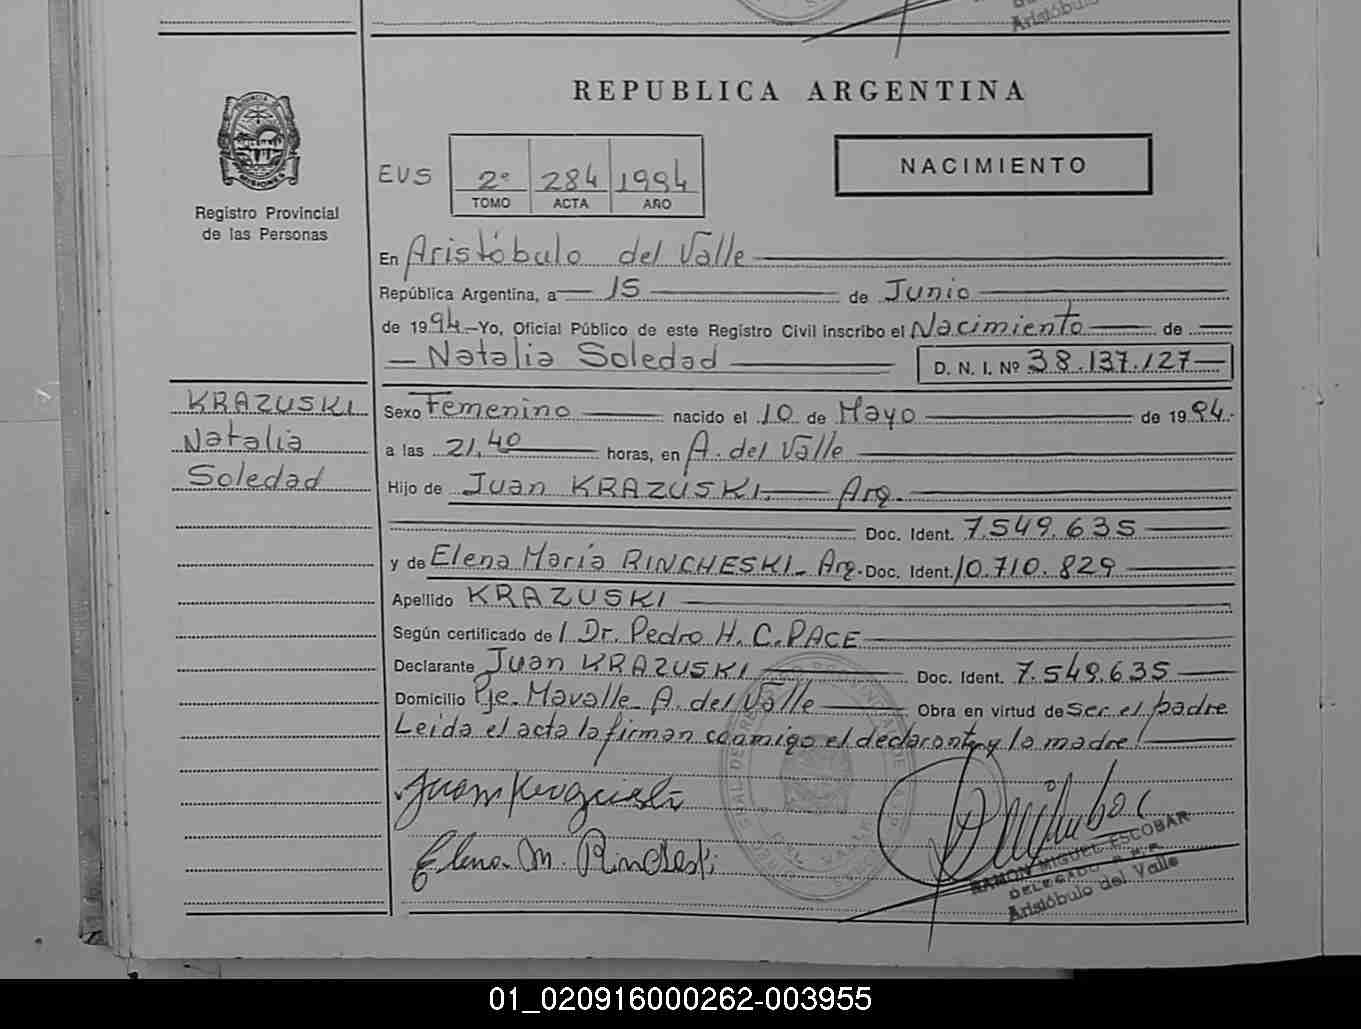 Aristóbulo
REPUBLICA ARGENTINA
PROVINCIA DE MISIONES
Registro Provincial
de las Personas
EVS 2º 284 1994
TOMO ACTA AÑO
NACIMIENTO
En Aristóbulo del Valle
República Argentina, a 15 de Junio
de 1994. Yo, Oficial Público de este Registro Civil inscribo el Nacimiento de
Natalia Soledad D. N. I. Nº 38.137.127
KRAZUSKI
Natalia
Soledad
Sexo Femenino nacido el 10 de Mayo de 1994.
a las 21,40 horas, en A. del Valle
Hijo de Juan KRAZUSKI. Arg.
Doc. Ident. 7.549.635
y de Elena María RINCHESKI - Arg. Doc. Ident. 10.710.829
Apellido KRAZUSKI
Según certificado de l Dr. Pedro H. C. PACE
Declarante Juan KRAZUSKI Doc. Ident. 7.549.635
Domicilio Pje. Mavalle - A. del Valle Obra en virtud de Ser el padre
Leída el acta la firman conmigo el declarante y la madre!
Elena M. Rincheski
RAMON MIGUEL ESCOBAR
DELEGADO
Aristóbulo del Valle
01_020916000262-003955